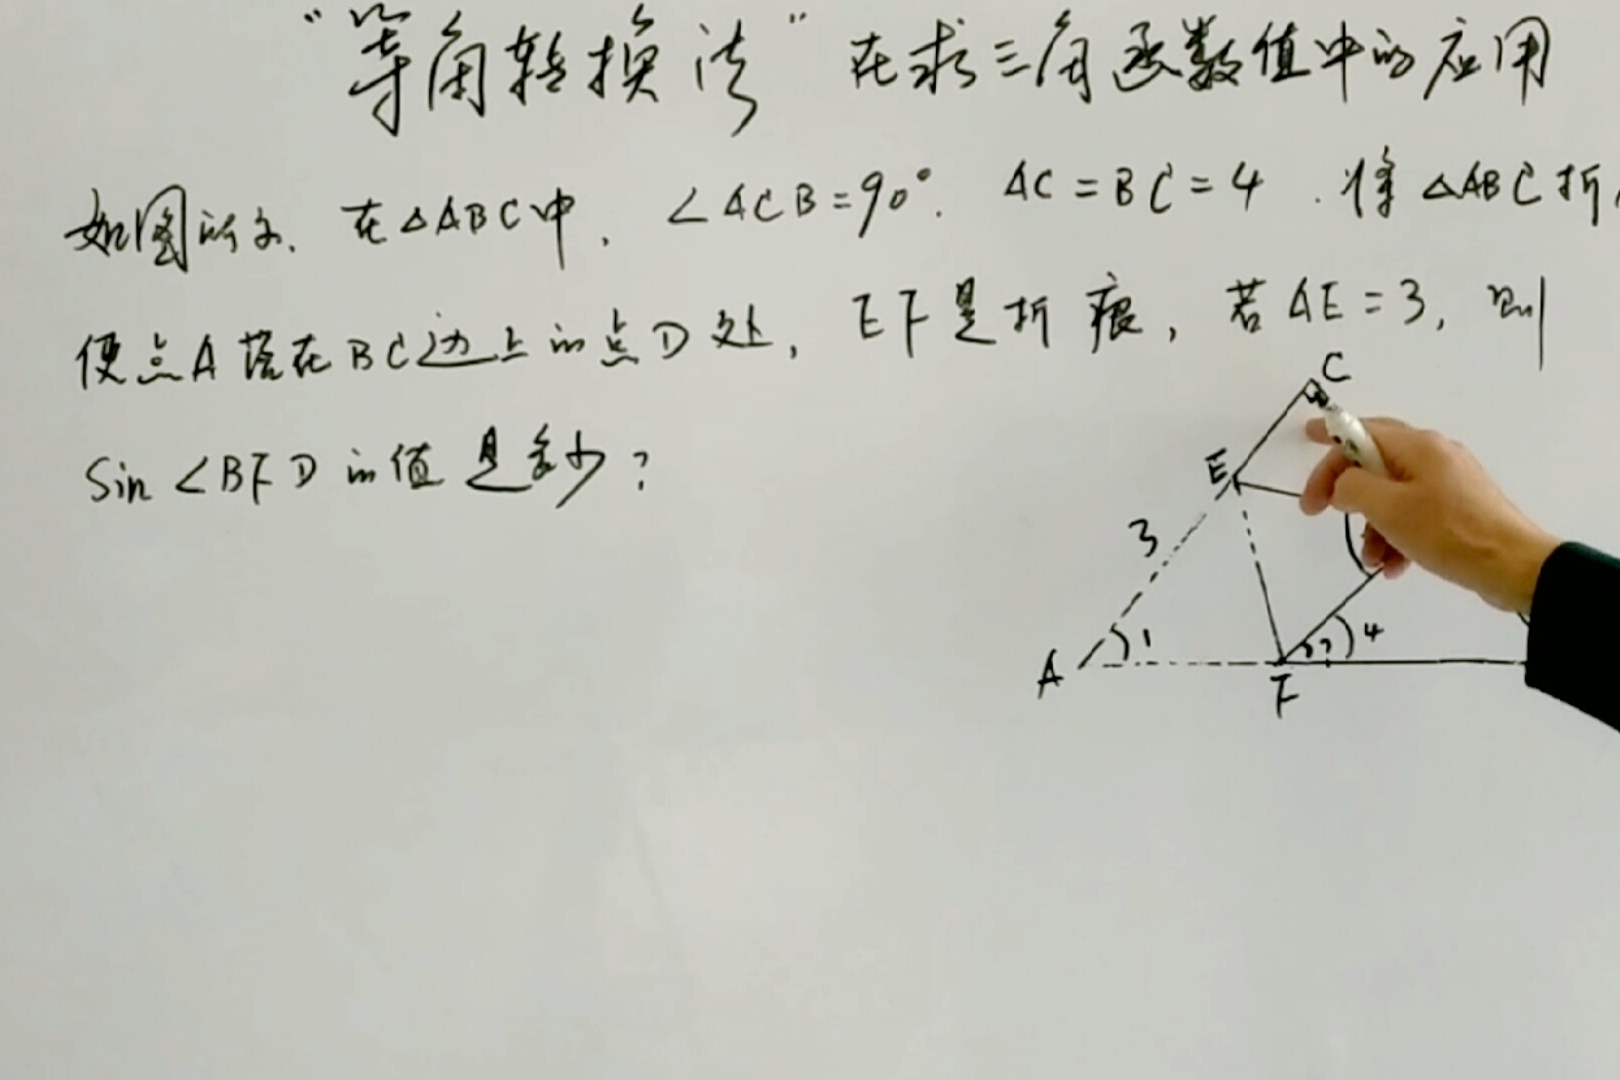 “等角转换法”在求三角函数值中的应用
如图所示.在△ABC中,∠ACB=90°.AC=BC=4.将△ABC折
使点A落在BC边上的点D处,EF是折痕,若AE=3,则
sin∠BFD的值是多少?
C
E
3
A
1
4
F